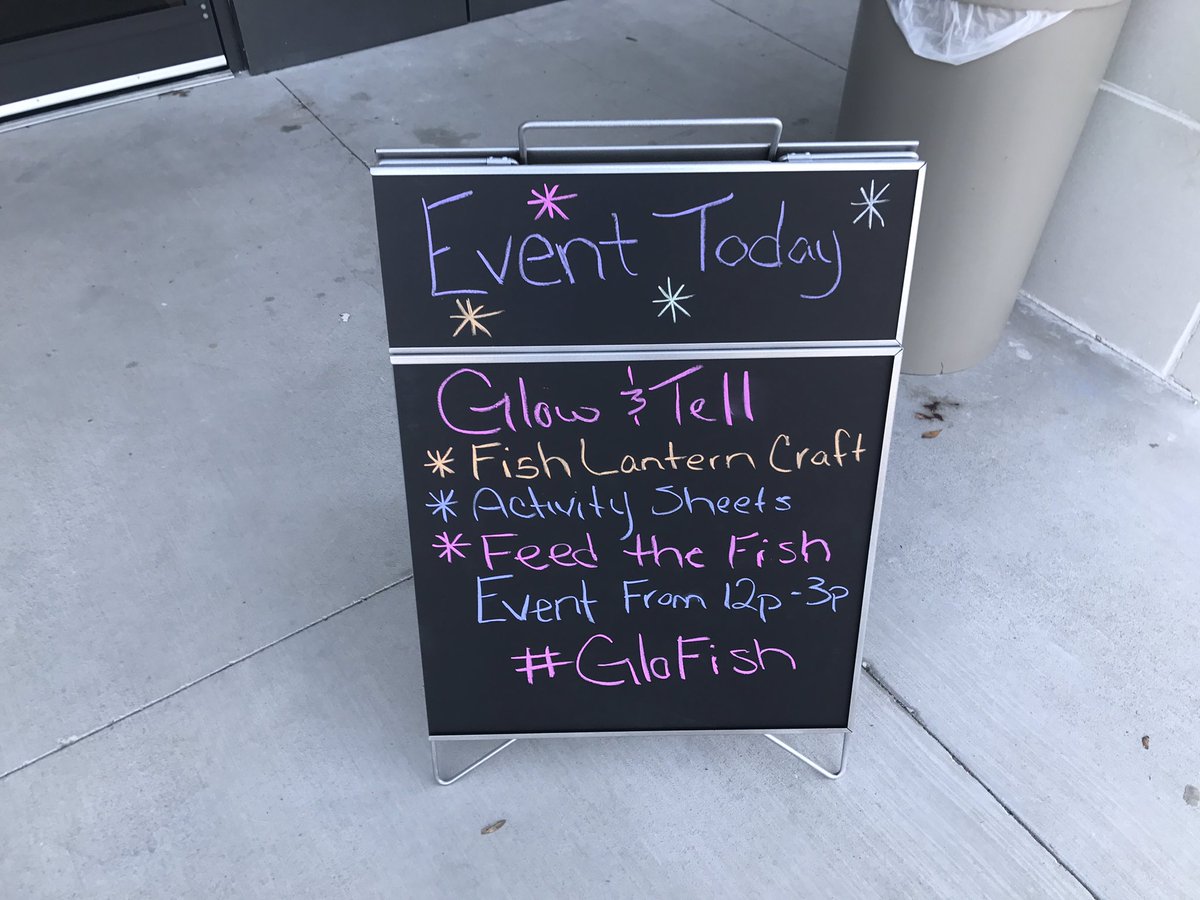 Event Today
Glow & Tell
* Fish Lantern Craft
* Activity Sheets
* Feed the Fish
Event From 12p-3p
#GloFish